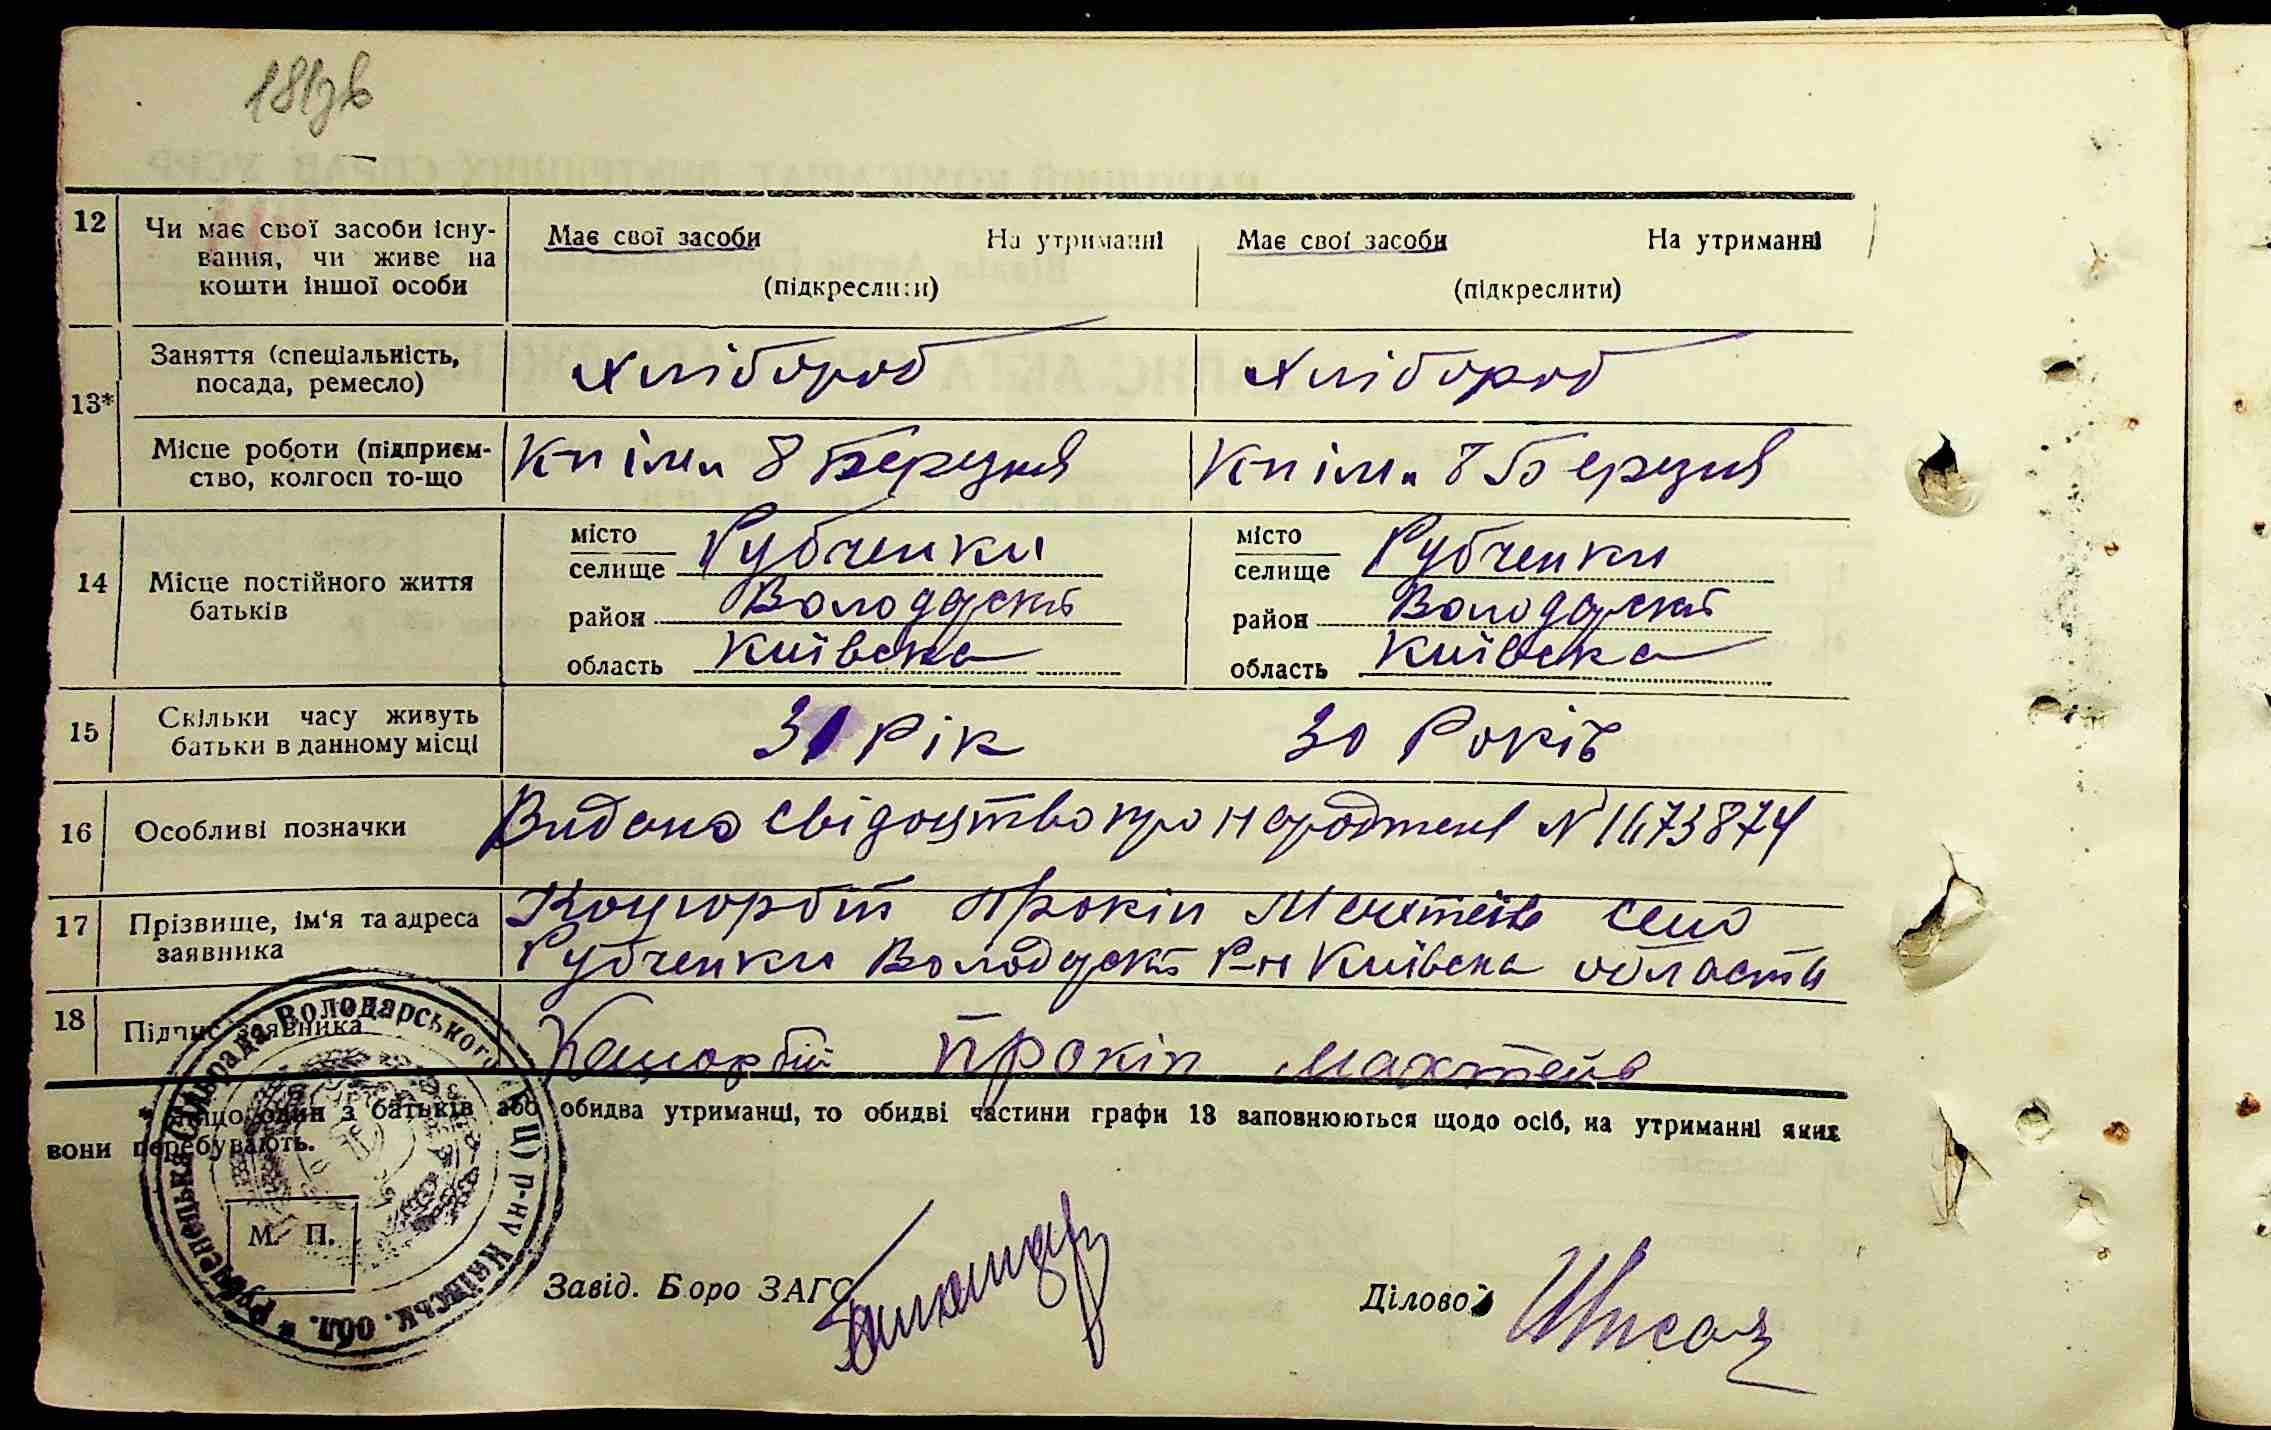 181зв
12
Чи має свої засоби існу-
вання, чи живе на
кошти іншої особи
Має свої засоби На утриманні
(підкреслити)
Має свої засоби На утриманні
(підкреслити)
13*
Заняття (спеціальність,
посада, ремесло)
Хлібороб
Хлібороб
Місце роботи (підприєм-
ство, колгосп то-що
Кп ім. 8 Березня
Кп ім. 8 Березня
14
Місце постійного життя
батьків
місто
селище Рубченки
район Володарский
область Київска
місто
селище Рубченки
район Володарский
область Київска
15
Скільки часу живуть
батьки в данному місці
31 Рік
30 Років
16
Особливі позначки
Видано свідоцтво про народженя №
17
Прізвище, ім'я та адреса
заявника
Прокіп село
Рубченки Р-н Київска области
18
Підпис заявника
Прокіп Махтейв
* Якщо один з батьків або обидва утриманці, то обидві частини графи 13 заповнюються щодо осіб, на утриманні яких
вони перебувають.
Рубченецька Сільрада Володарського р-ну Київськ. обл.
М. П.
Завід. Бюро ЗАГС
Діловод